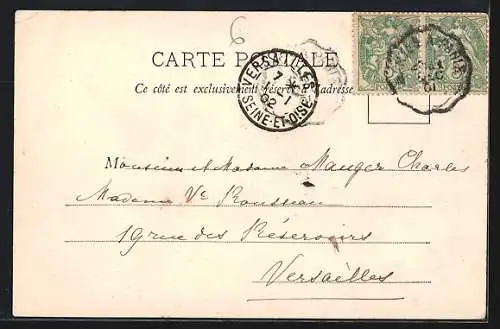 6
CARTE POSTALE
Ce côté est exclusivement réservé à l'adresse
VERSAILLES
7 *
1 - 1
02
SEINE-ET-OISE
Monsieur et Madame Mauger Charles
Madame Ve Rousseau
19 rue des Réservoirs
Versailles